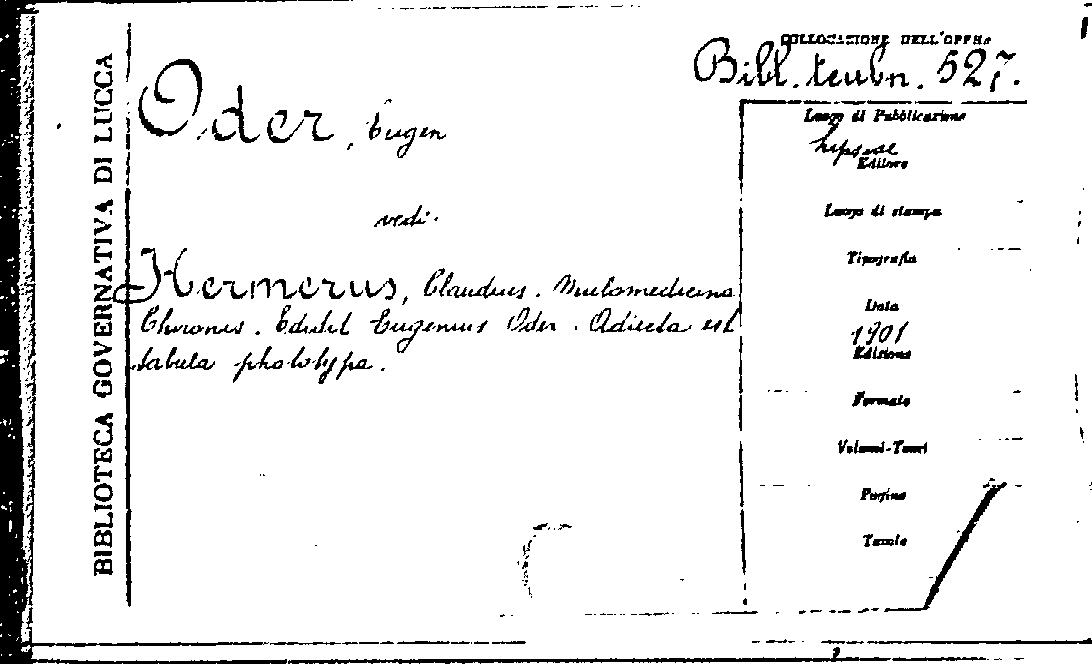 BIBLIOTECA GOVERNATIVA DI LUCCA
COLLOCAZIONE DELL'OPERA
Bibl. teubn. 527.
Oder, Eugen
vedi.
Hermerus, Claudius. Mulomedicina
Chironis. Edidit Eugenius Oder. Adiecta est
tabula phototypa.
Luogo di Pubblicazione
Lipsiae
Editore
Luogo di stampa
Tipografia
Data
1901
Edizione
Formato
Volumi-Tomi
Pagine
Tavole